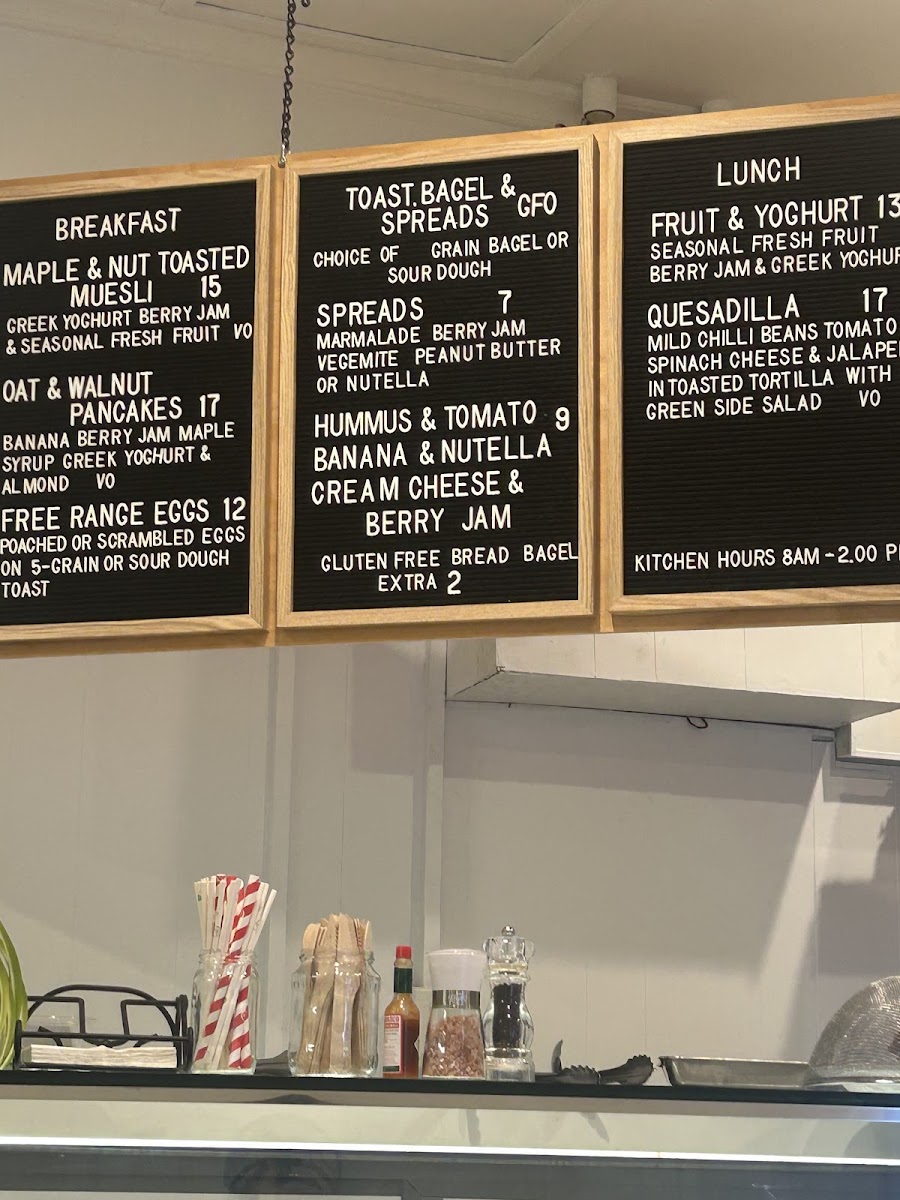 BREAKFAST
MAPLE & NUT TOASTED
MUESLI 15
GREEK YOGHURT BERRY JAM
& SEASONAL FRESH FRUIT VO
OAT & WALNUT
PANCAKES 17
BANANA BERRY JAM MAPLE
SYRUP GREEK YOGHURT &
ALMOND VO
FREE RANGE EGGS 12
POACHED OR SCRAMBLED EGGS
ON 5-GRAIN OR SOUR DOUGH
TOAST
TOAST. BAGEL &
SPREADS GFO
CHOICE OF GRAIN BAGEL OR
SOUR DOUGH
SPREADS 7
MARMALADE BERRY JAM
VEGEMITE PEANUT BUTTER
OR NUTELLA
HUMMUS & TOMATO 9
BANANA & NUTELLA
CREAM CHEESE &
BERRY JAM
GLUTEN FREE BREAD BAGEL
EXTRA 2
LUNCH
FRUIT & YOGHURT 13
SEASONAL FRESH FRUIT
BERRY JAM & GREEK YOGHUR
QUESADILLA 17
MILD CHILLI BEANS TOMATO
SPINACH CHEESE & JALAPE
IN TOASTED TORTILLA WITH
GREEN SIDE SALAD VO
KITCHEN HOURS 8AM - 2.00 P